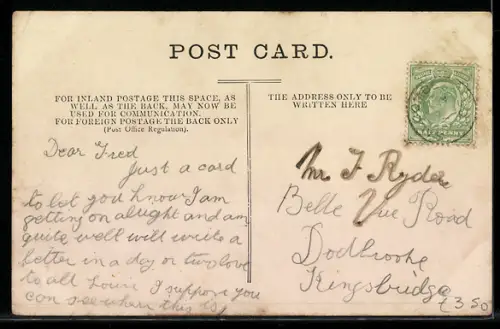 POST CARD.
FOR INLAND POSTAGE THIS SPACE, AS
WELL AS THE BACK, MAY NOW BE
USED FOR COMMUNICATION.
FOR FOREIGN POSTAGE THE BACK ONLY
(Post Office Regulation).
THE ADDRESS ONLY TO BE
WRITTEN HERE
HALF PENNY
Dear Fred
Just a card
to let you know I am
getting on alright and am
quite well will write a
letter in a day or two love
to all I suppose you
can see when this is
Mr F Ryder
Belle Vue Road
Dodbrooke
Kingsbridge
£3.50